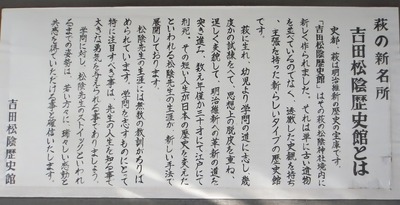 萩の新名所
吉田松陰歴史館とは
史都、萩は明治維新の歴史の宝庫です。
「吉田松陰歴史館」はその萩の松陰神社境内に
新しく作られました。それは単に古い遺物
を並べているのでなく、透徹した史観を持ち
、主張を持った新らしいタイプの歴史館
萩に生れ、幼児より学問の道に志し、幾
度かの試練をへて、思想上の脱皮を重ね、
逞しく変貌して、明治維新への革新の道を
突き進み、数え年僅か三十才にて江戸にて
刑死。その短い人生が日本の歴史を変えた
といわれる松陰先生の生涯が新しい手法で
展開しております。
松陰先生の生涯には無数の教訓がちりば
められています。学問を志すものにとって
特に注目すべき事は、先生の人生を知る事で
大きな勇気を与えられる事でありましょう。
学問に対し、松陰先生のストイックといわれ
るまでの姿勢は、若い方々に瑞々しい感動と
共感を呼んでいただける事と確信いたします。
吉田松陰歴史館